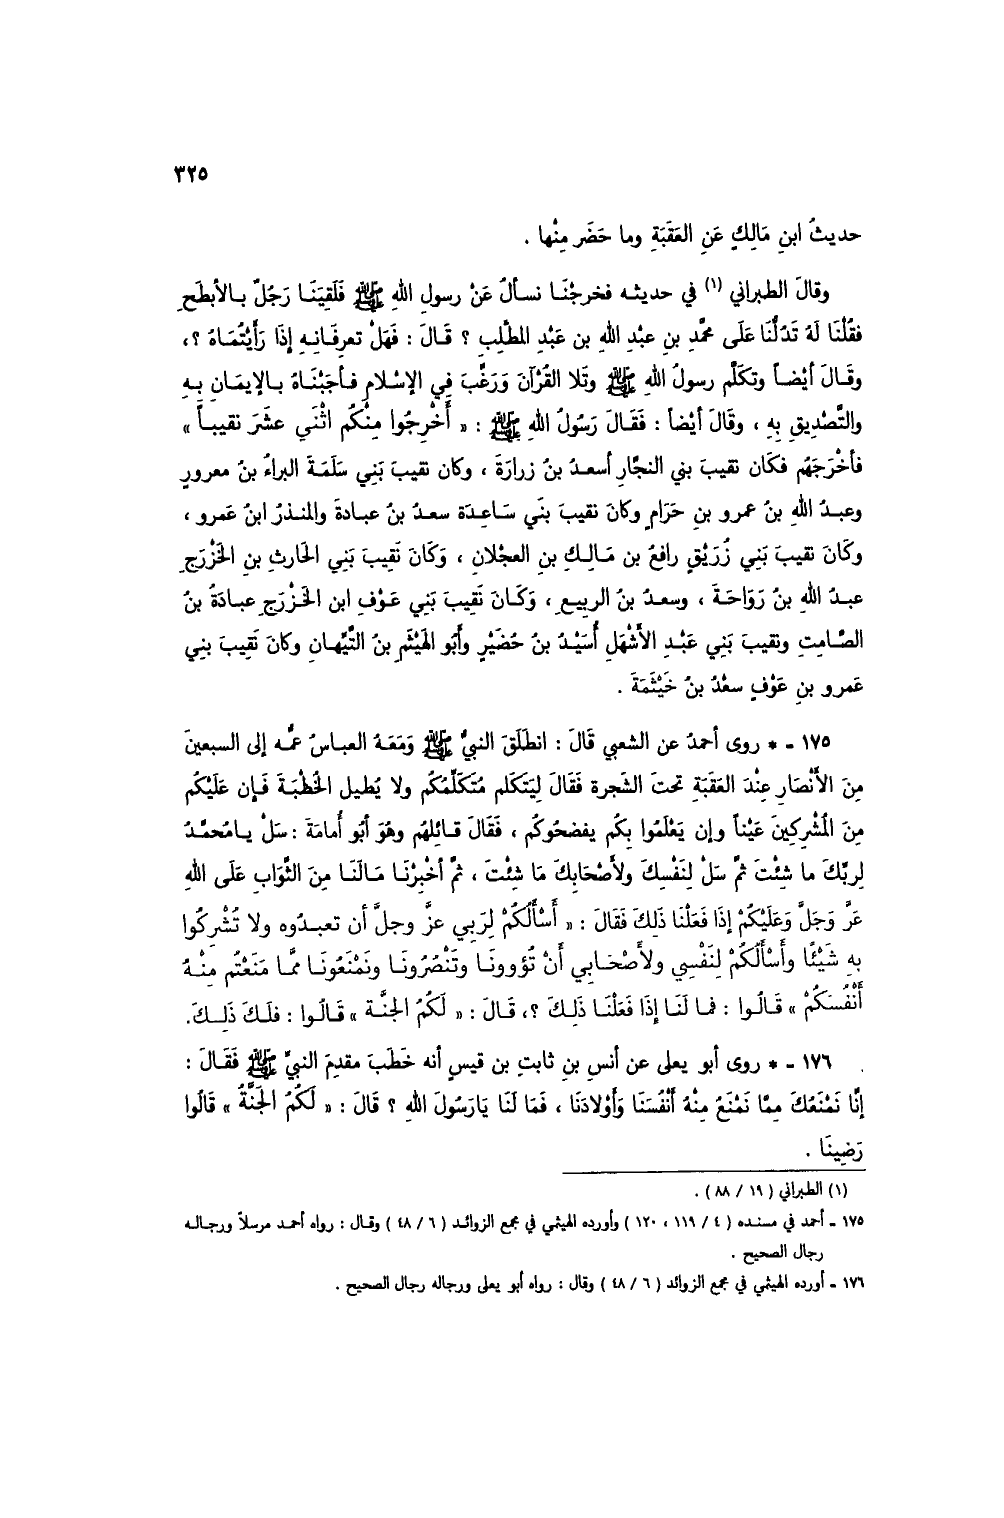 ٣٢٥
حديثُ ابنِ مَالِكٍ عَنِ العَقَبَةِ وما حَضَر مِنْها .
وقالَ الطبراني (١) في حديثه فخرجْنَا نسألُ عَنْ رسولِ اللهِ ﷺ فَلَقِيَنَا رَجُلٌ بالأبطَحِ
فقُلْنَا لَهُ تَدُلُّنَا عَلَى محمَّدِ بنِ عبْدِ اللهِ بن عَبْدِ المطَّلِب ؟ قَالَ : فَهَلْ تعرفَانِهِ إذَا رَأَيْتُمَاهُ ؟،
وقَالَ أيْضاً وتكَلَّم رسولُ اللهِ ﷺ وتَلا القُرْآنَ وَرَغَّبَ فِي الإسْلام فأجَبْنَاهُ بالإيمَانِ بِهِ
والتَّصْدِيقِ بِهِ ، وقَالَ أيْضاً : فَقَالَ رَسُولُ اللهِ ﷺ : « أَخْرِجُوا مِنْكُم اثْنَي عشَرَ نقيباً »
فأخْرَجَهُم فكَان نقيبَ بني النجَّارِ أسعدُ بنُ زرارَةَ ، وكان نقيبَ بَنِي سَلَمَةَ البراءُ بنُ معرورٍ
وعبدُ اللهِ بنُ عمرو بنِ حرَامٍ وكانَ نقيبَ بنَي سَاعِدَة سعدُ بنُ عبادةَ والمنذرُ ابنُ عَمرو ،
وكَانَ نقيبَ بَنِي زُرَيْقٍ رافعُ بن مَالِكِ بنِ العجْلانِ ، وَكَانَ نَقِيبَ بَنِي الحَارثِ بنِ الخَزْرَجِ
عبدُ اللهِ بنُ رَوَاحَةَ ، وسعدُ بنُ الربيعِ ، وَكَانَ نَقِيبَ بَنِي عَوْفِ ابن الخَزْرَجِ عبادَةُ بنُ
الصَّامِتِ ونقيبَ بَنِي عَبْدِ الأَشْهَلِ أُسَيْدُ بنُ حُضَيْرٍ وأَبُو الهَيْثَمِ بنُ التَّيِّهانِ وكانَ نَقِيبَ بنِي
عَمرو بنِ عَوْفٍ سعْدُ بنُ خَيْثَمَةَ .
١٧٥ - * روى أحمدُ عن الشعبي قَالَ : انطلَقَ النبيُّ ﷺ وَمَعَهُ العباسُ عمُّه إلى السبعينَ
مِنَ الأَنْصَارِ عِنْدَ العَقَبَةِ تحتَ الشَّجرة فَقَالَ لِيَتَكَلم مُتَكَلِّمُكُم ولا يُطيل الخُطْبَةَ فَإن عَلَيْكُم
مِنَ الْمُشْركِينَ عَيْناً وإن يَعْلَمُوا بِكُم يفضحُوكُم ، فَقَالَ قائِلهُم وهُوَ أبُو أُمامَةَ : سَلْ يامُحمَّدُ
لِربِّكَ ما شِئْتَ ثمَّ سَلْ لِنَفْسِكَ ولأَصْحَابِكَ مَا شِئْتَ ، ثمَّ أخْبِرْنَا مَالَنَا مِنَ الثَّوَابِ عَلَى اللهِ
عَزَّ وَجَلَّ وَعَلَيْكُمْ إذَا فَعَلْنَا ذَلِكَ فَقَالَ : « أَسْأَلُكُمْ لِرَبي عزَّ وجلَّ أن تعبدُوه ولا تُشْركُوا
بِهِ شَيْئًا وأَسْأَلُكُمْ لِنَفْسِي ولأَصْحَابي أَنْ تُؤوونَا وتَنْصُرُونَا ونَمْنَعُونَا ممَّا مَنَعْتُم مِنْهُ
أَنْفُسَكُمْ » قَالُوا : فما لَنَا إذَا فَعَلْنَا ذَلِكَ ؟، قَالَ : « لَكُمُ الجنَّة » قَالُوا : فلَكَ ذَلِكَ.
١٧٦ - * روى أبو يعلى عن أنس بنِ ثابتِ بن قيسٍ أنه خَطَبَ مقدمَ النبيِّ ﷺ فَقَالَ :
إنَّا نَمْنَعُكَ مِمَّا نَمْنَعُ مِنْهُ أَنْفُسَنَا وَأَوْلادَنَا ، فَمَا لَنَا يَارَسُولَ اللهِ ؟ قَالَ : « لَكُمُ الجَنَّةُ » قَالُوا
رَضِينَا .
(١) الطبراني ( ١٩ / ٨٨ ) .
١٧٥ - أحمد في مسنده ( ٤ / ١١٩ ، ١٢٠ ) وأورده الهيثمي في مجمع الزوائد ( ٦ / ٤٨ ) وقال : رواه أحمد مرسلاً ورجاله
رجال الصحيح .
١٧٦ - أورده الهيثمي في مجمع الزوائد ( ٦ / ٤٨ ) وقال : رواه أبو يعلى ورجاله رجال الصحيح .